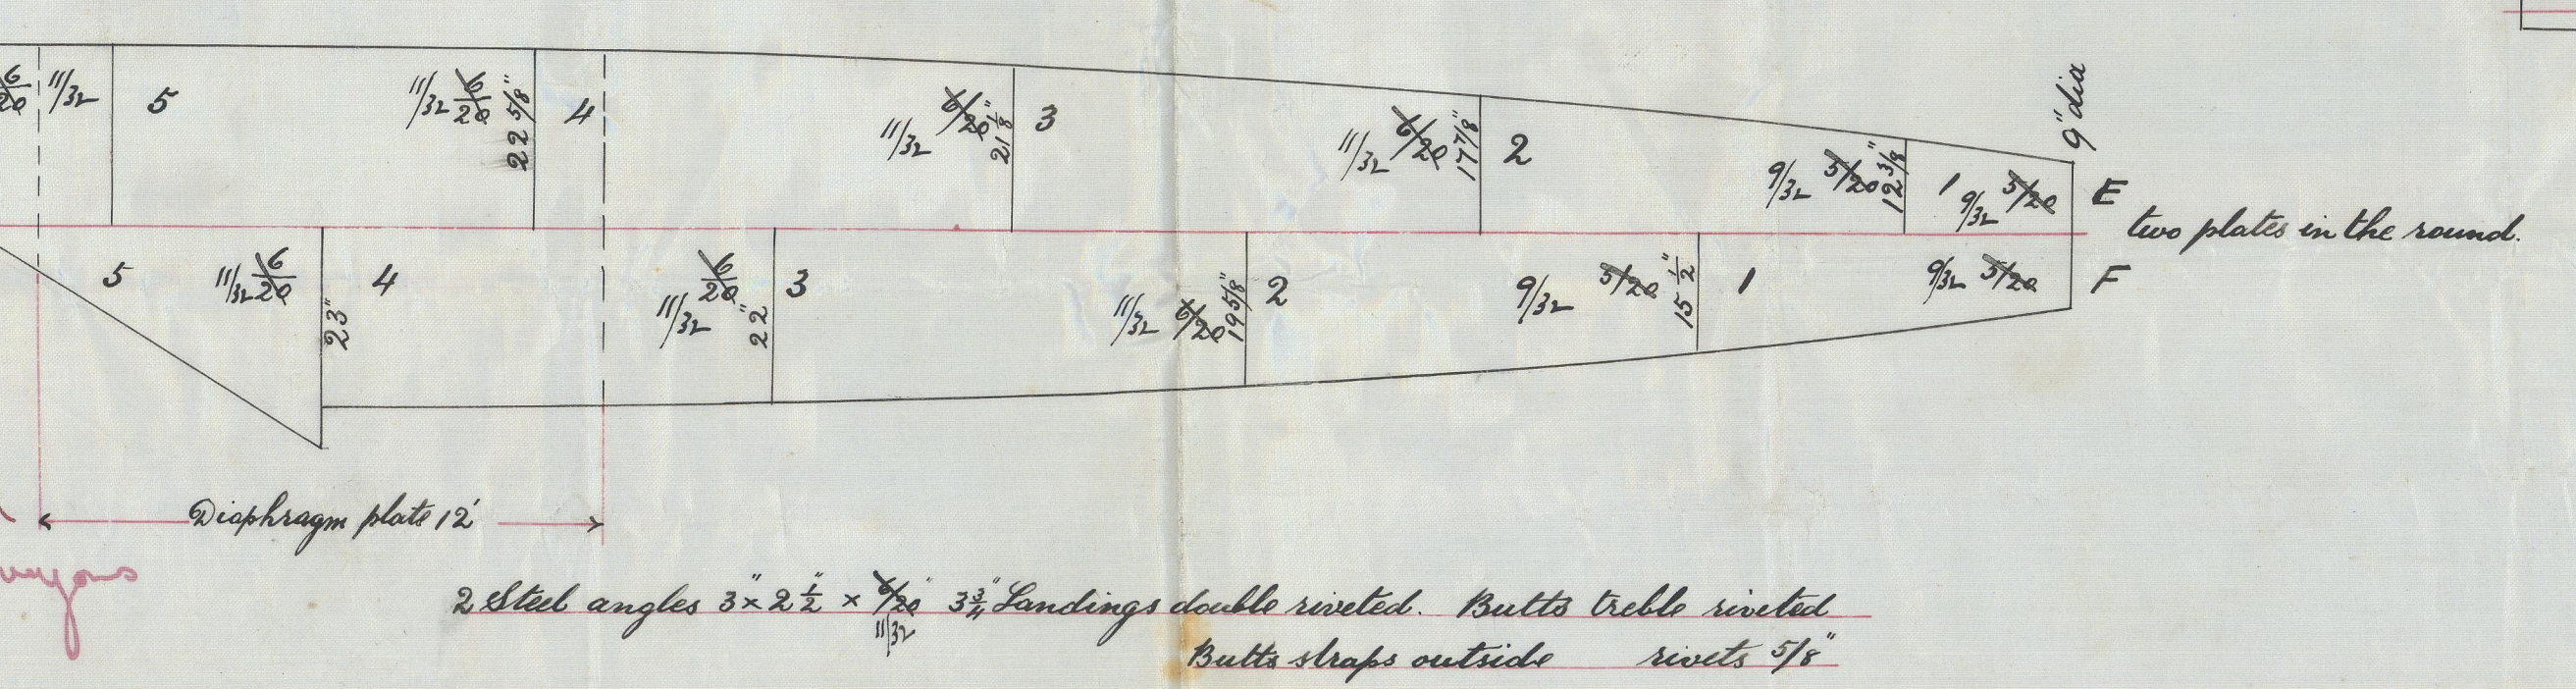 6/20 11/32 5 11/32 6/20 22 5/8" 4 11/32 6/20 21 1/8" 3 11/32 6/20 17 7/8" 2 9/32 5/20 12 3/8" 1 9/32 5/20 9" dia E
two plates in the round.
5 11/32 6/20 23" 4 11/32 6/20 22" 3 11/32 6/20 19 5/8" 2 9/32 5/20 15 1/2" 1 9/32 5/20 F
Diaphragm plate 12'
2 Steel angles 3" x 2 1/2" x 6/20" 3 3/4" Landings double riveted. Butts treble riveted
11/32
Butts straps outside rivets 5/8"